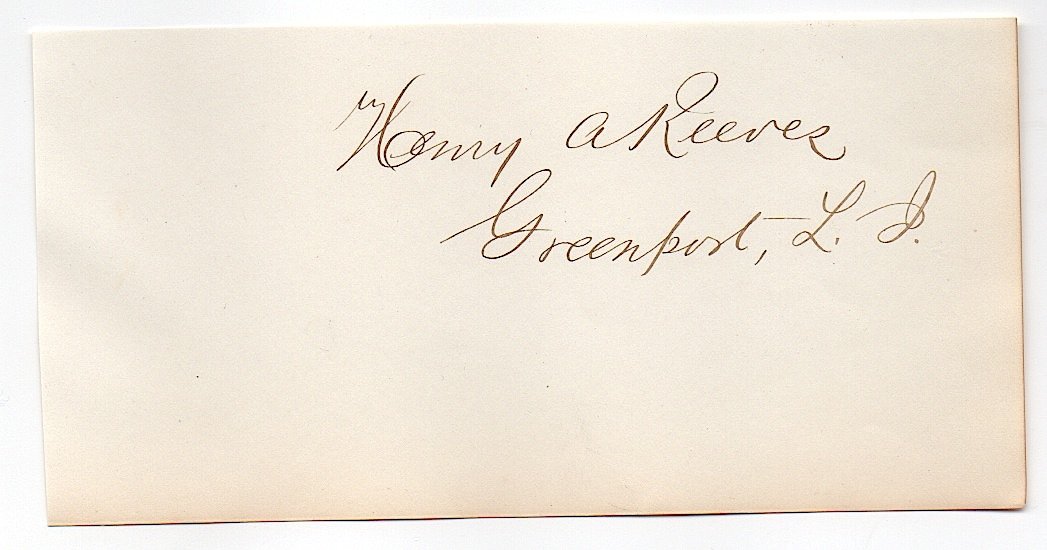 Henry A Reeves
Greenport, L. I.